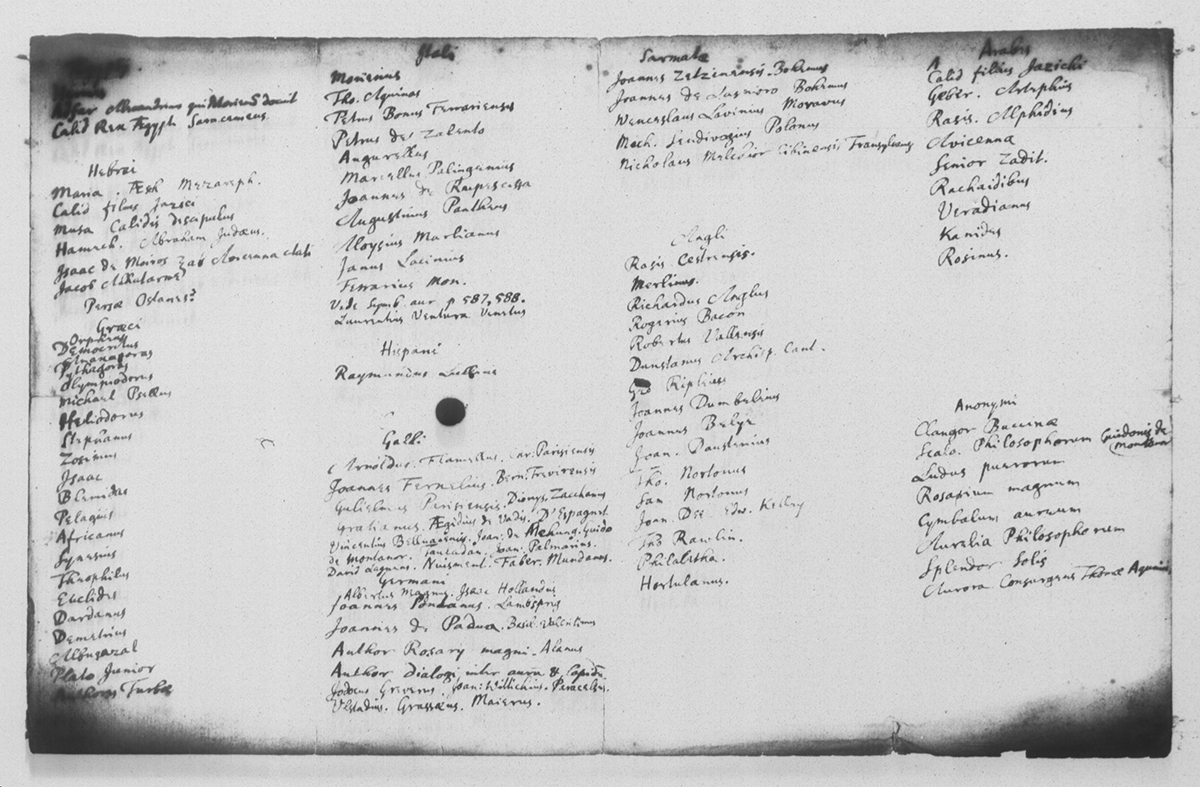 Adfar Alexandrinus qui Morienem docuit
Calid Rex Ægypti Saracenus
Hebræi
Maria. Æsh Mezareph.
Calid filius Jazici
Musa Calidis discipulus
Hamech. Abraham Judæus.
Isaac de Moiros
Jacob
Persæ Ostanes?
Græci
Orpheus
Democritus
Pythagoras
Olympiodorus
Michael Psellus
Heliodorus
Stephanus
Zosimus
Isaac
Blemidas
Pelagius
Africanus
Synesius
Theophilus
Euclides
Dardanus
Demetrius
Albugazal
Plato Junior
Authores Turbæ
Itali
Morienus
Tho. Aquinas
Petrus Bonus Ferrariensis
Petrus de Zalento
Augurellus
Marcellus Palingenius
Joannes de Rupescissa
Augustinus Pantheus
Aloysius Marlianus
Janus Lacinius
Ferrarius Mon.
Vide Symb. aur. p 587, 588.
Laurentius Ventura Venetus
Hispani
Raymundus Lullius
Galli
Arnoldus. Flamellus. Car. Parisiensis
Joannes Fernelius. Bern. Trevirensis
Gulielmus Parisiensis. Dionys. Zaccharius
Gratianus. Ægidius de Vadis. D'Espagnet
Vincentius Belluacensis. Joan. de Mehung. Guido
de Montanor. Joan. Palmarius.
David Lagneus. Nuisment. Faber. Mundanus.
Germani
Albertus Magnus. Isaac Hollandus
Joannes Pontanus. Lambsprig
Joannes de Padua. Basil Valentinus
Author Rosary magni. Alanus
Author dialogi inter aurum & lapidem
Jodocus Greverus. Joan: Willichius. Paracelsus.
Ulstadius. Grassæus. Maierus.
Sarmatæ
Joannes Zetzenensis. Bohemus
Joannes de Lasnioro Bohemus
Wenceslaus Lavinius Moravus
Mich. Sendivogius Polonus
Nicholaus Melchior Cibinensis, Transylvanus
Angli
Rasis Cestrensis.
Merlinus.
Richardus Anglus
Rogerius Bacon
Robertus Vallensis
Dunstanus Archiep. Cant.
Geo Ripleius
Joannes Dumbelius
Joannes Belye
Joan. Pauperius
Tho. Nortonus
Sam. Nortonus
Joan. Dee Edw. Kelley
Tho Rawlin.
Philaletha.
Hortulanus.
Arabes
Calid filius Jazichi
Geber. Artephius
Rasis. Alphidius
Avicenna
Senior Zadit.
Rachaidibus
Veradianus
Kanidus
Rosinus.
Anonymi
Clangor Buccinæ
Scala Philosophorum Guidonis de Montanor
Ludus puerorum
Rosarium magnum
Cymbalum aureum
Aurelia Philosophorum
Splendor Solis
Aurora Consurgens Thomæ Aquin.